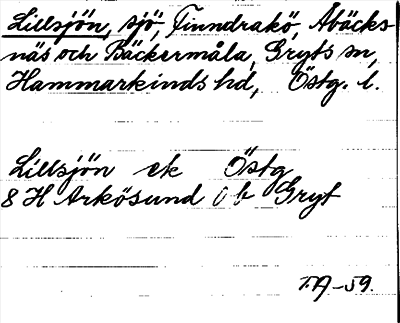 Lillsjön, sjö, Finndrakö, Åbäcks-
näs och Bäckermåla, Gryts sn,
Hammarkinds hd, Östg. l.
Lillsjön ek Östg
8 H Arkösund 0 b Gryt
T.A-59.